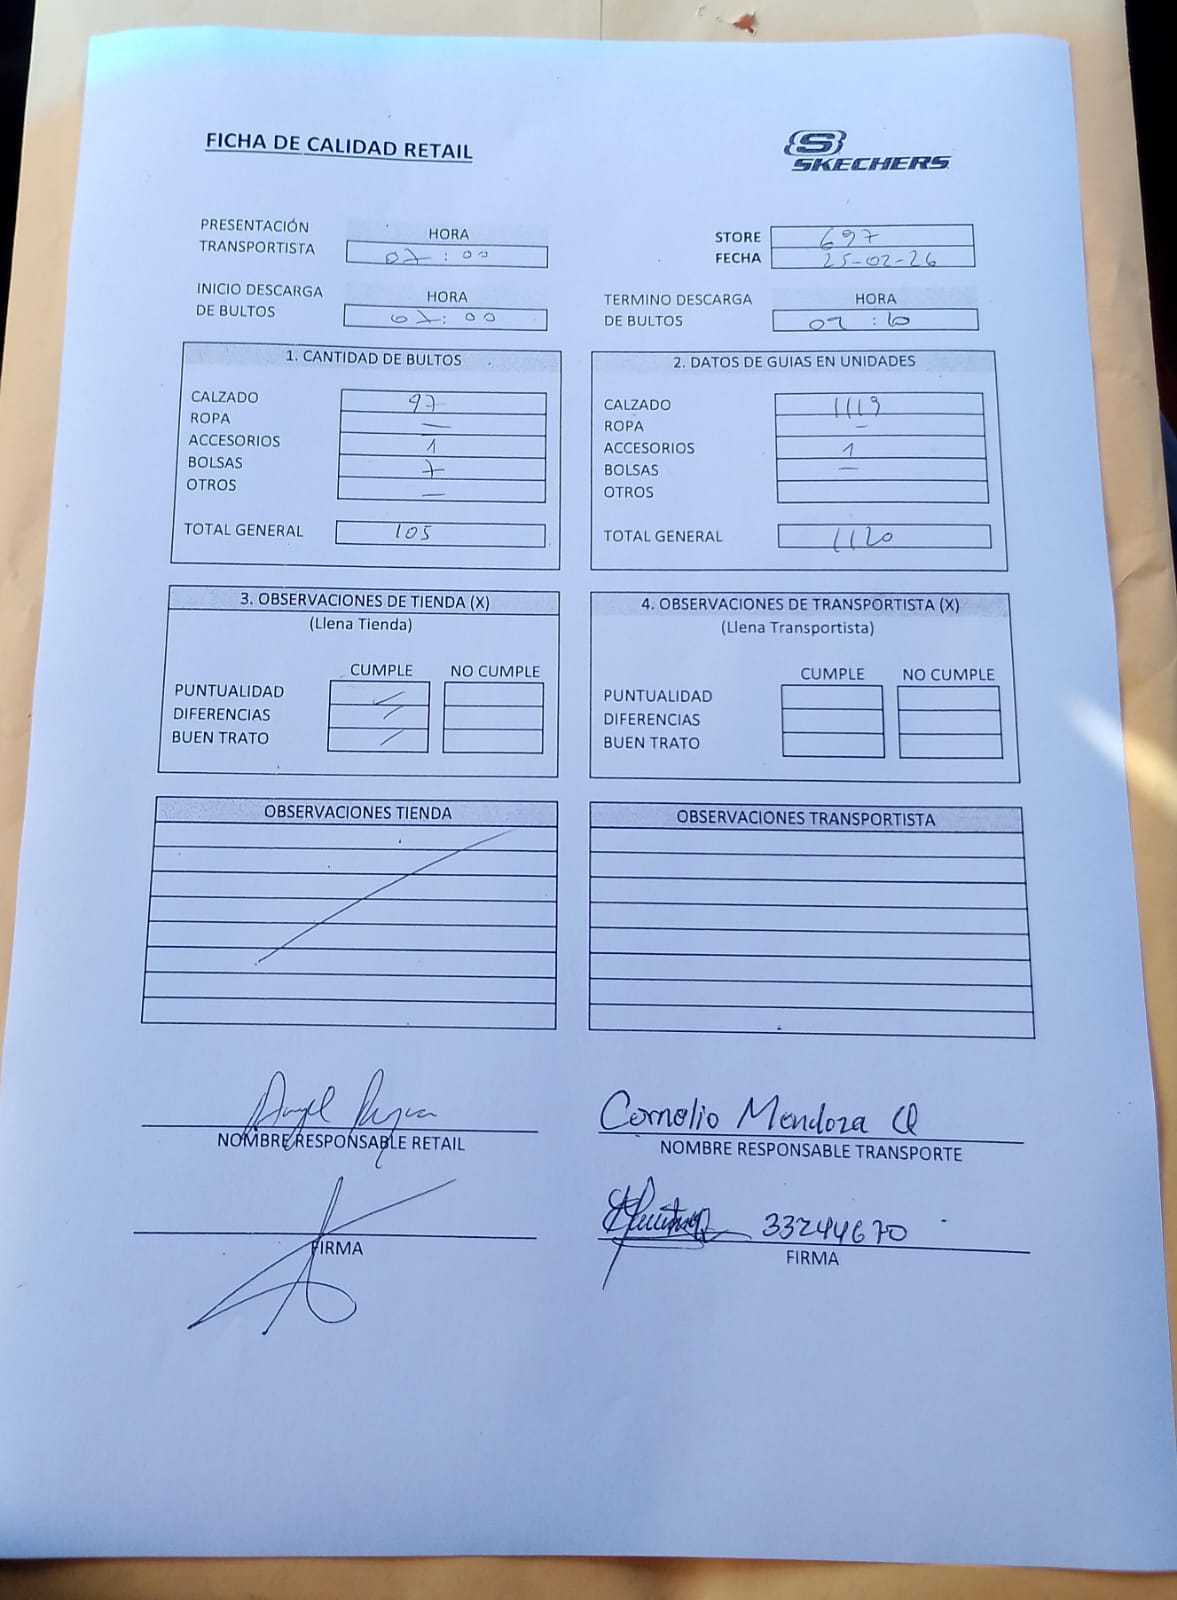 FICHA DE CALIDAD RETAIL
SKECHERS
PRESENTACIÓN TRANSPORTISTA
HORA
07:00
STORE 697
FECHA 25-02-26
INICIO DESCARGA DE BULTOS
HORA
07:00
TERMINO DESCARGA DE BULTOS
HORA
07:10
1. CANTIDAD DE BULTOS
CALZADO 97
ROPA —
ACCESORIOS 1
BOLSAS 7
OTROS —
TOTAL GENERAL 105
2. DATOS DE GUIAS EN UNIDADES
CALZADO 1119
ROPA —
ACCESORIOS 1
BOLSAS —
OTROS
TOTAL GENERAL 1120
3. OBSERVACIONES DE TIENDA (X)
(Llena Tienda)
CUMPLE NO CUMPLE
PUNTUALIDAD
DIFERENCIAS
BUEN TRATO
4. OBSERVACIONES DE TRANSPORTISTA (X)
(Llena Transportista)
CUMPLE NO CUMPLE
PUNTUALIDAD
DIFERENCIAS
BUEN TRATO
OBSERVACIONES TIENDA
OBSERVACIONES TRANSPORTISTA
Angel
NOMBRE RESPONSABLE RETAIL
Cornelio Mendoza Q
NOMBRE RESPONSABLE TRANSPORTE
FIRMA
33244670
FIRMA